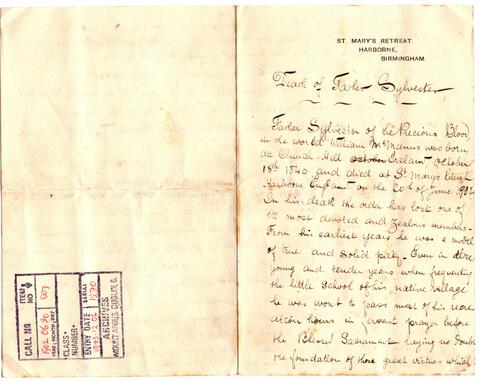 ST. MARY'S RETREAT.
HARBORNE,
BIRMINGHAM
Death of Father Sylvester
Father Sylvester of the Precious Blood
in the world William McManus was born
at Church Hill october Ireland October
18th 1840 and died at St Mary's
Harborne England on the 20th of June
In his death the order has lost one of
its most devoted and Zealous members.
From his earliest years he was a model
of true and solid piety. Even in those
young and tender years when frequenting
the little school of his native village
he was wont to pass most of his recre
ation hours in fervent prayer before
the Blessed Sacrament laying no doubt
the foundation of those great virtues which
CALL NO
ITEM NO
YEAR MONTH DAY
CLASS
NUMBER
ENTRY DATE
SERIAL
1270
ARCHIVES
MOUNT ARGUS, DUBLIN, 6.